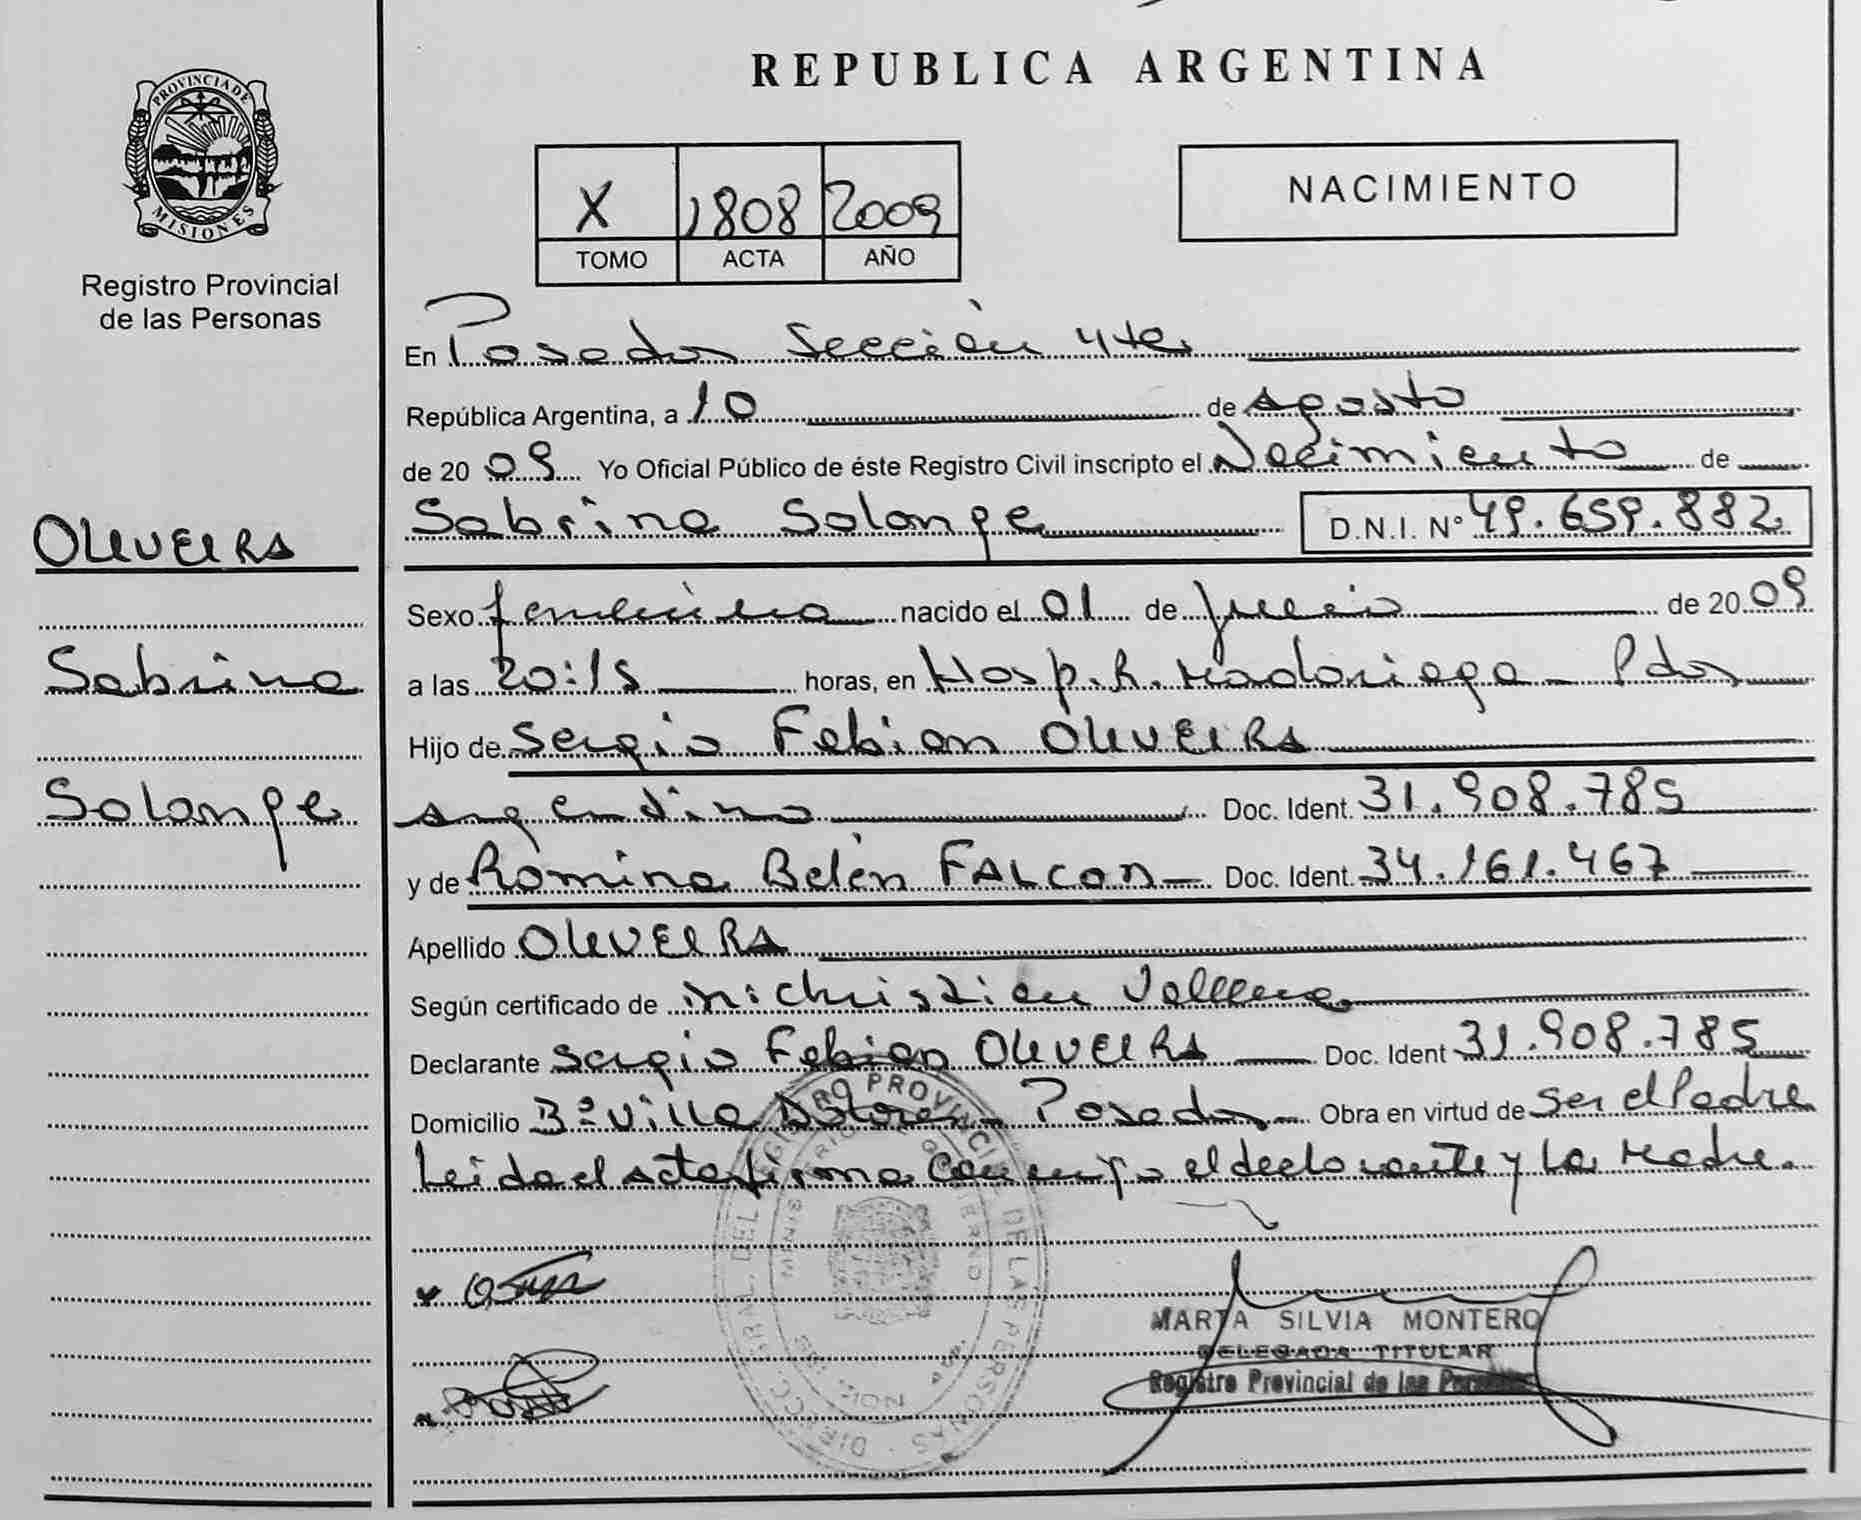 REPUBLICA ARGENTINA
PROVINCIA DE MISIONES
Registro Provincial
de las Personas
X 1808 2009
TOMO ACTA AÑO
NACIMIENTO
En Posadas Sección 4ta
República Argentina, a 10 de Agosto
de 2009 Yo Oficial Público de éste Registro Civil inscripto el Nacimiento de
Sabrina Solange D.N.I. N° 49.659.882
OLIVEIRA
Sabrina
Solange
Sexo femenino nacido el 01 de Julio de 2009
a las 20:15 horas, en Hosp. R. Madariaga - Pdas
Hijo de Sergio Fabian OLIVEIRA
argentino Doc. Ident. 31.908.785
y de Romina Belén FALCON Doc. Ident. 34.161.467
Apellido OLIVEIRA
Según certificado de Christian
Declarante Sergio Fabian OLIVEIRA Doc. Ident 31.908.785
Domicilio B° Villa Dolores - Posadas Obra en virtud de ser el Padre
Leida el acta firma conmigo el declarante y la Madre.
MARTA SILVIA MONTERO
DELEGADA TITULAR
Registro Provincial de las Personas
REGISTRO PROVINCIAL DE LAS PERSONAS